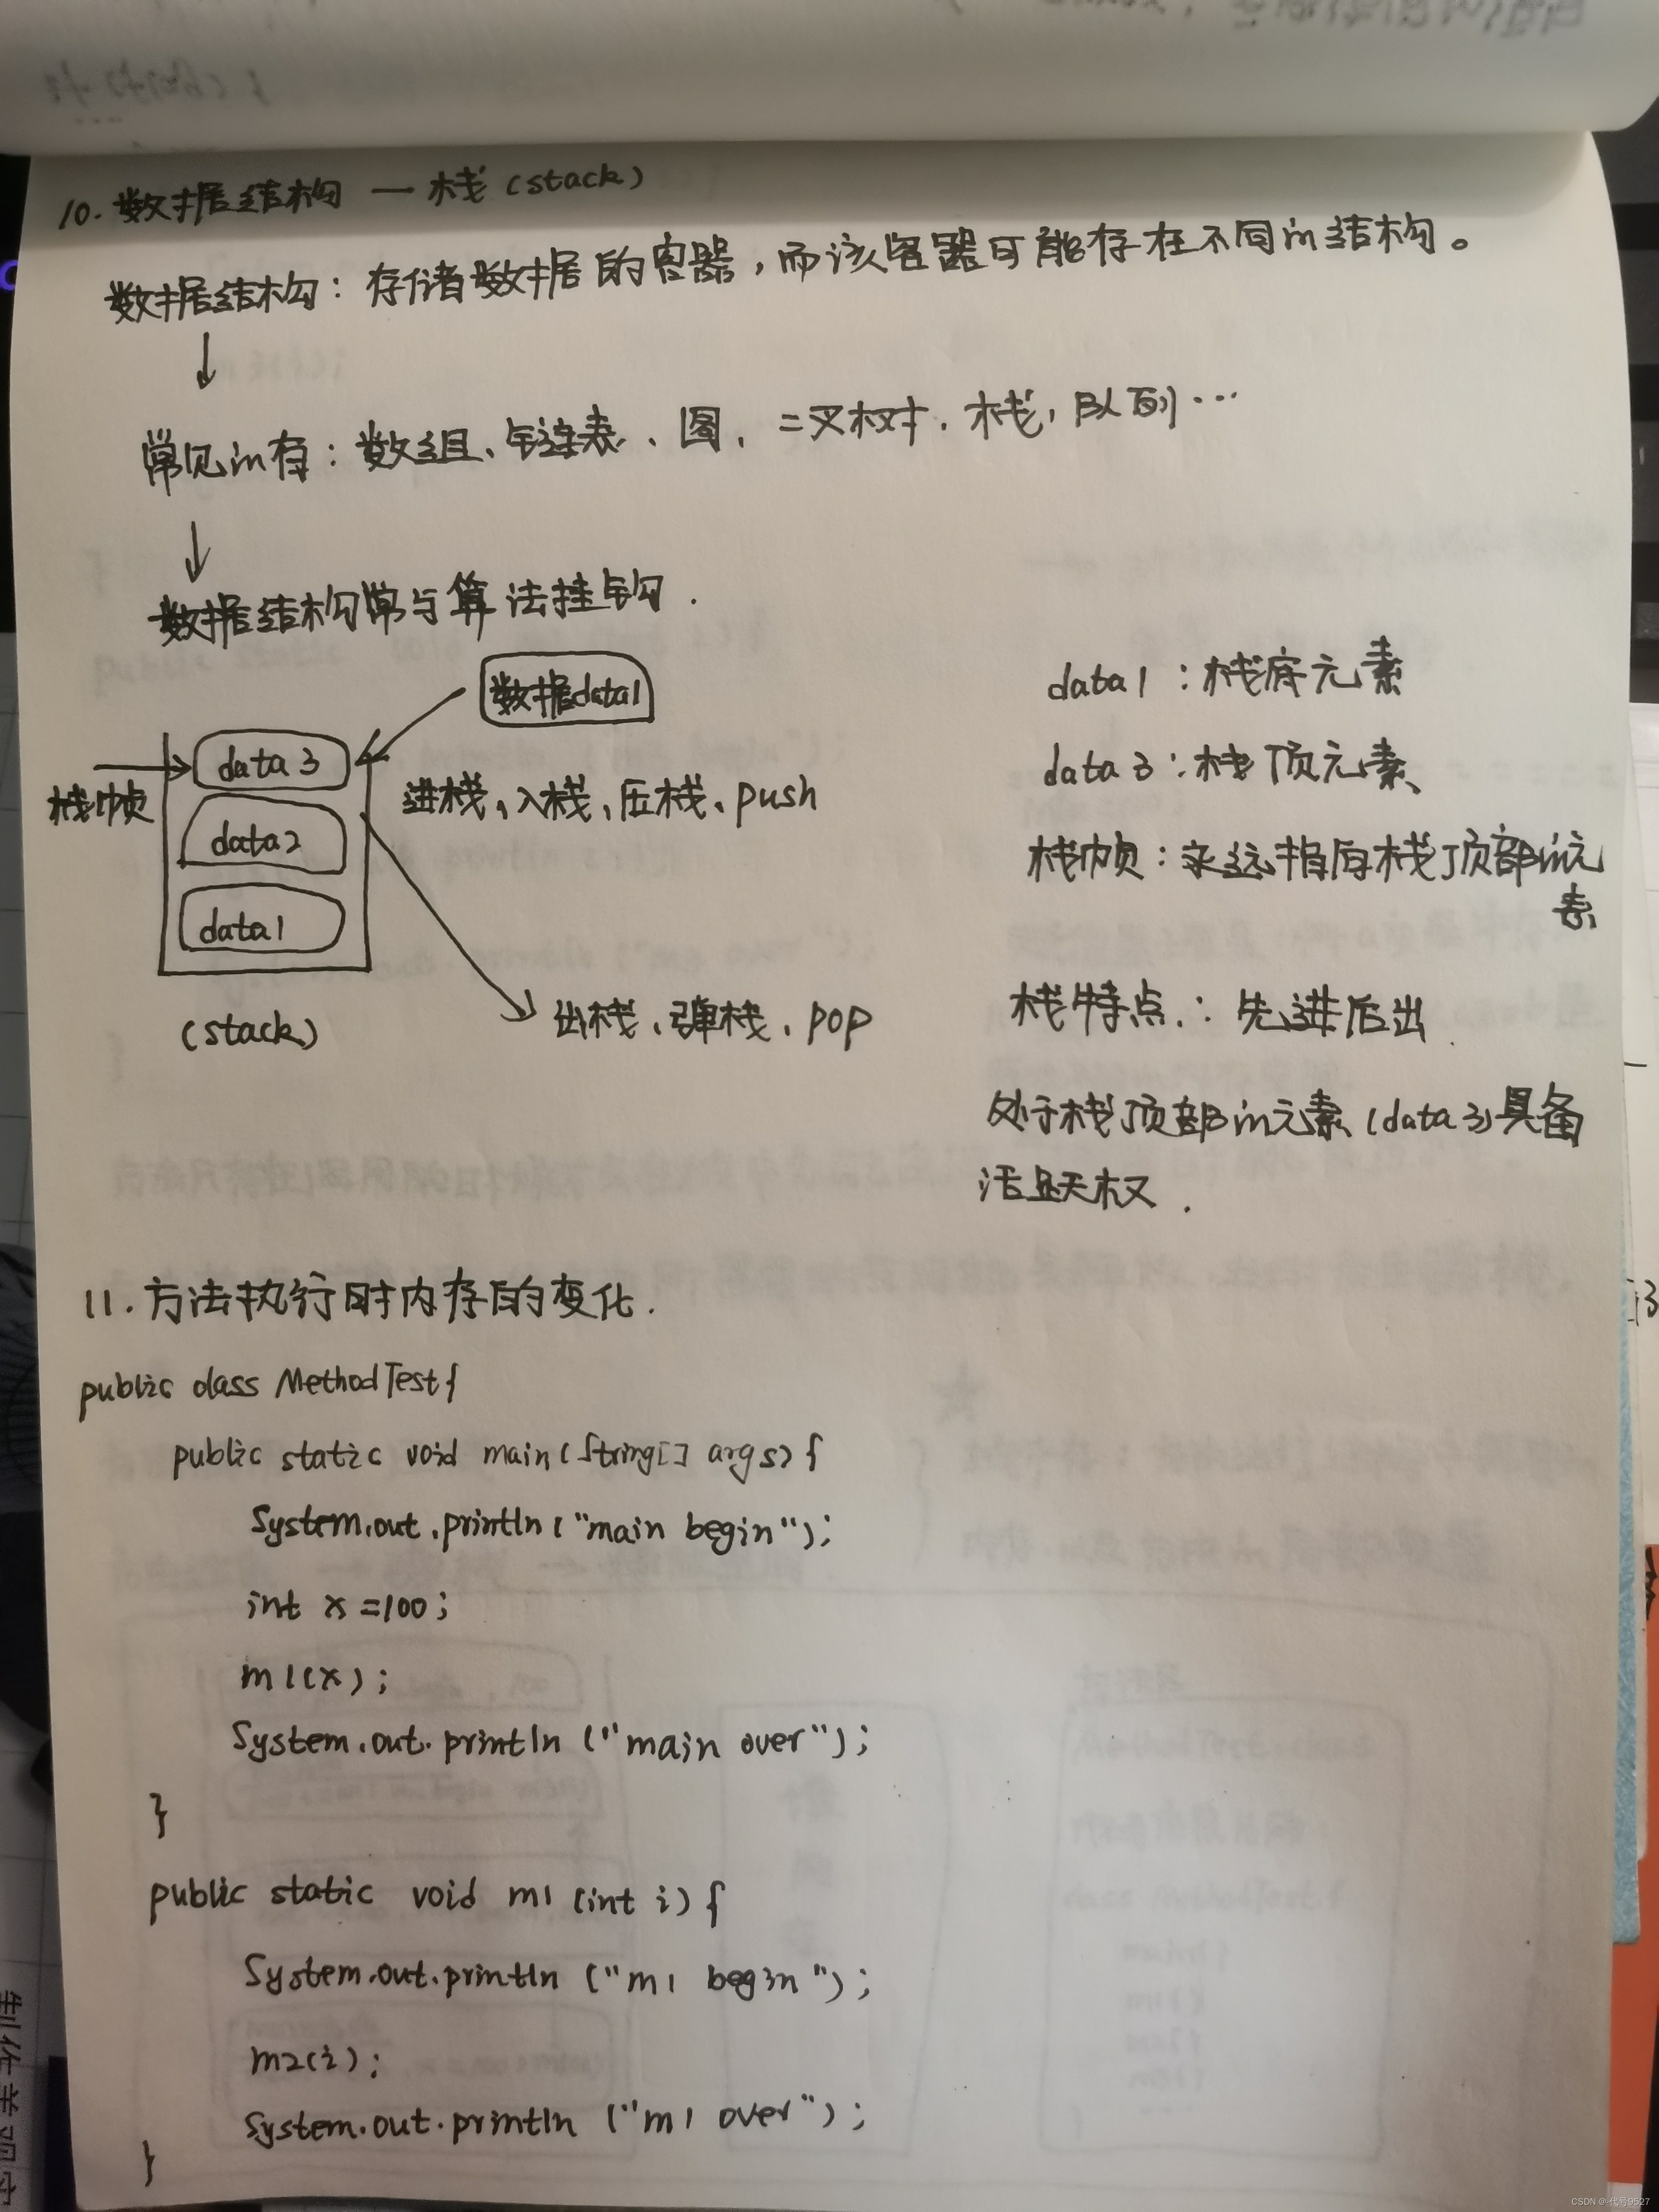 10. 数据结构 — 栈 (stack)
数据结构: 存储数据的容器, 而该容器可能存在不同的结构。
常见的有: 数组、链表、图、二叉树、栈, 队列…
数据结构常与算法挂钩.
数据data1
data3
data2
data1
栈帧
进栈、入栈、压栈、push
(stack)
出栈、弹栈、pop
data1 : 栈底元素
data3 : 栈顶元素
栈帧: 永远指向栈顶部的元
素
栈特点: 先进后出
处于栈顶部的元素(data3)具备
活跃权.
11. 方法执行时内存的变化.
public class MethodTest{
public static void main(String[] args){
System.out.println("main begin");
int x=100;
m1(x);
System.out.println("main over");
}
public static void m1(int i){
System.out.println("m1 begin");
m2(i);
System.out.println("m1 over");
}
CSDN @代号9527